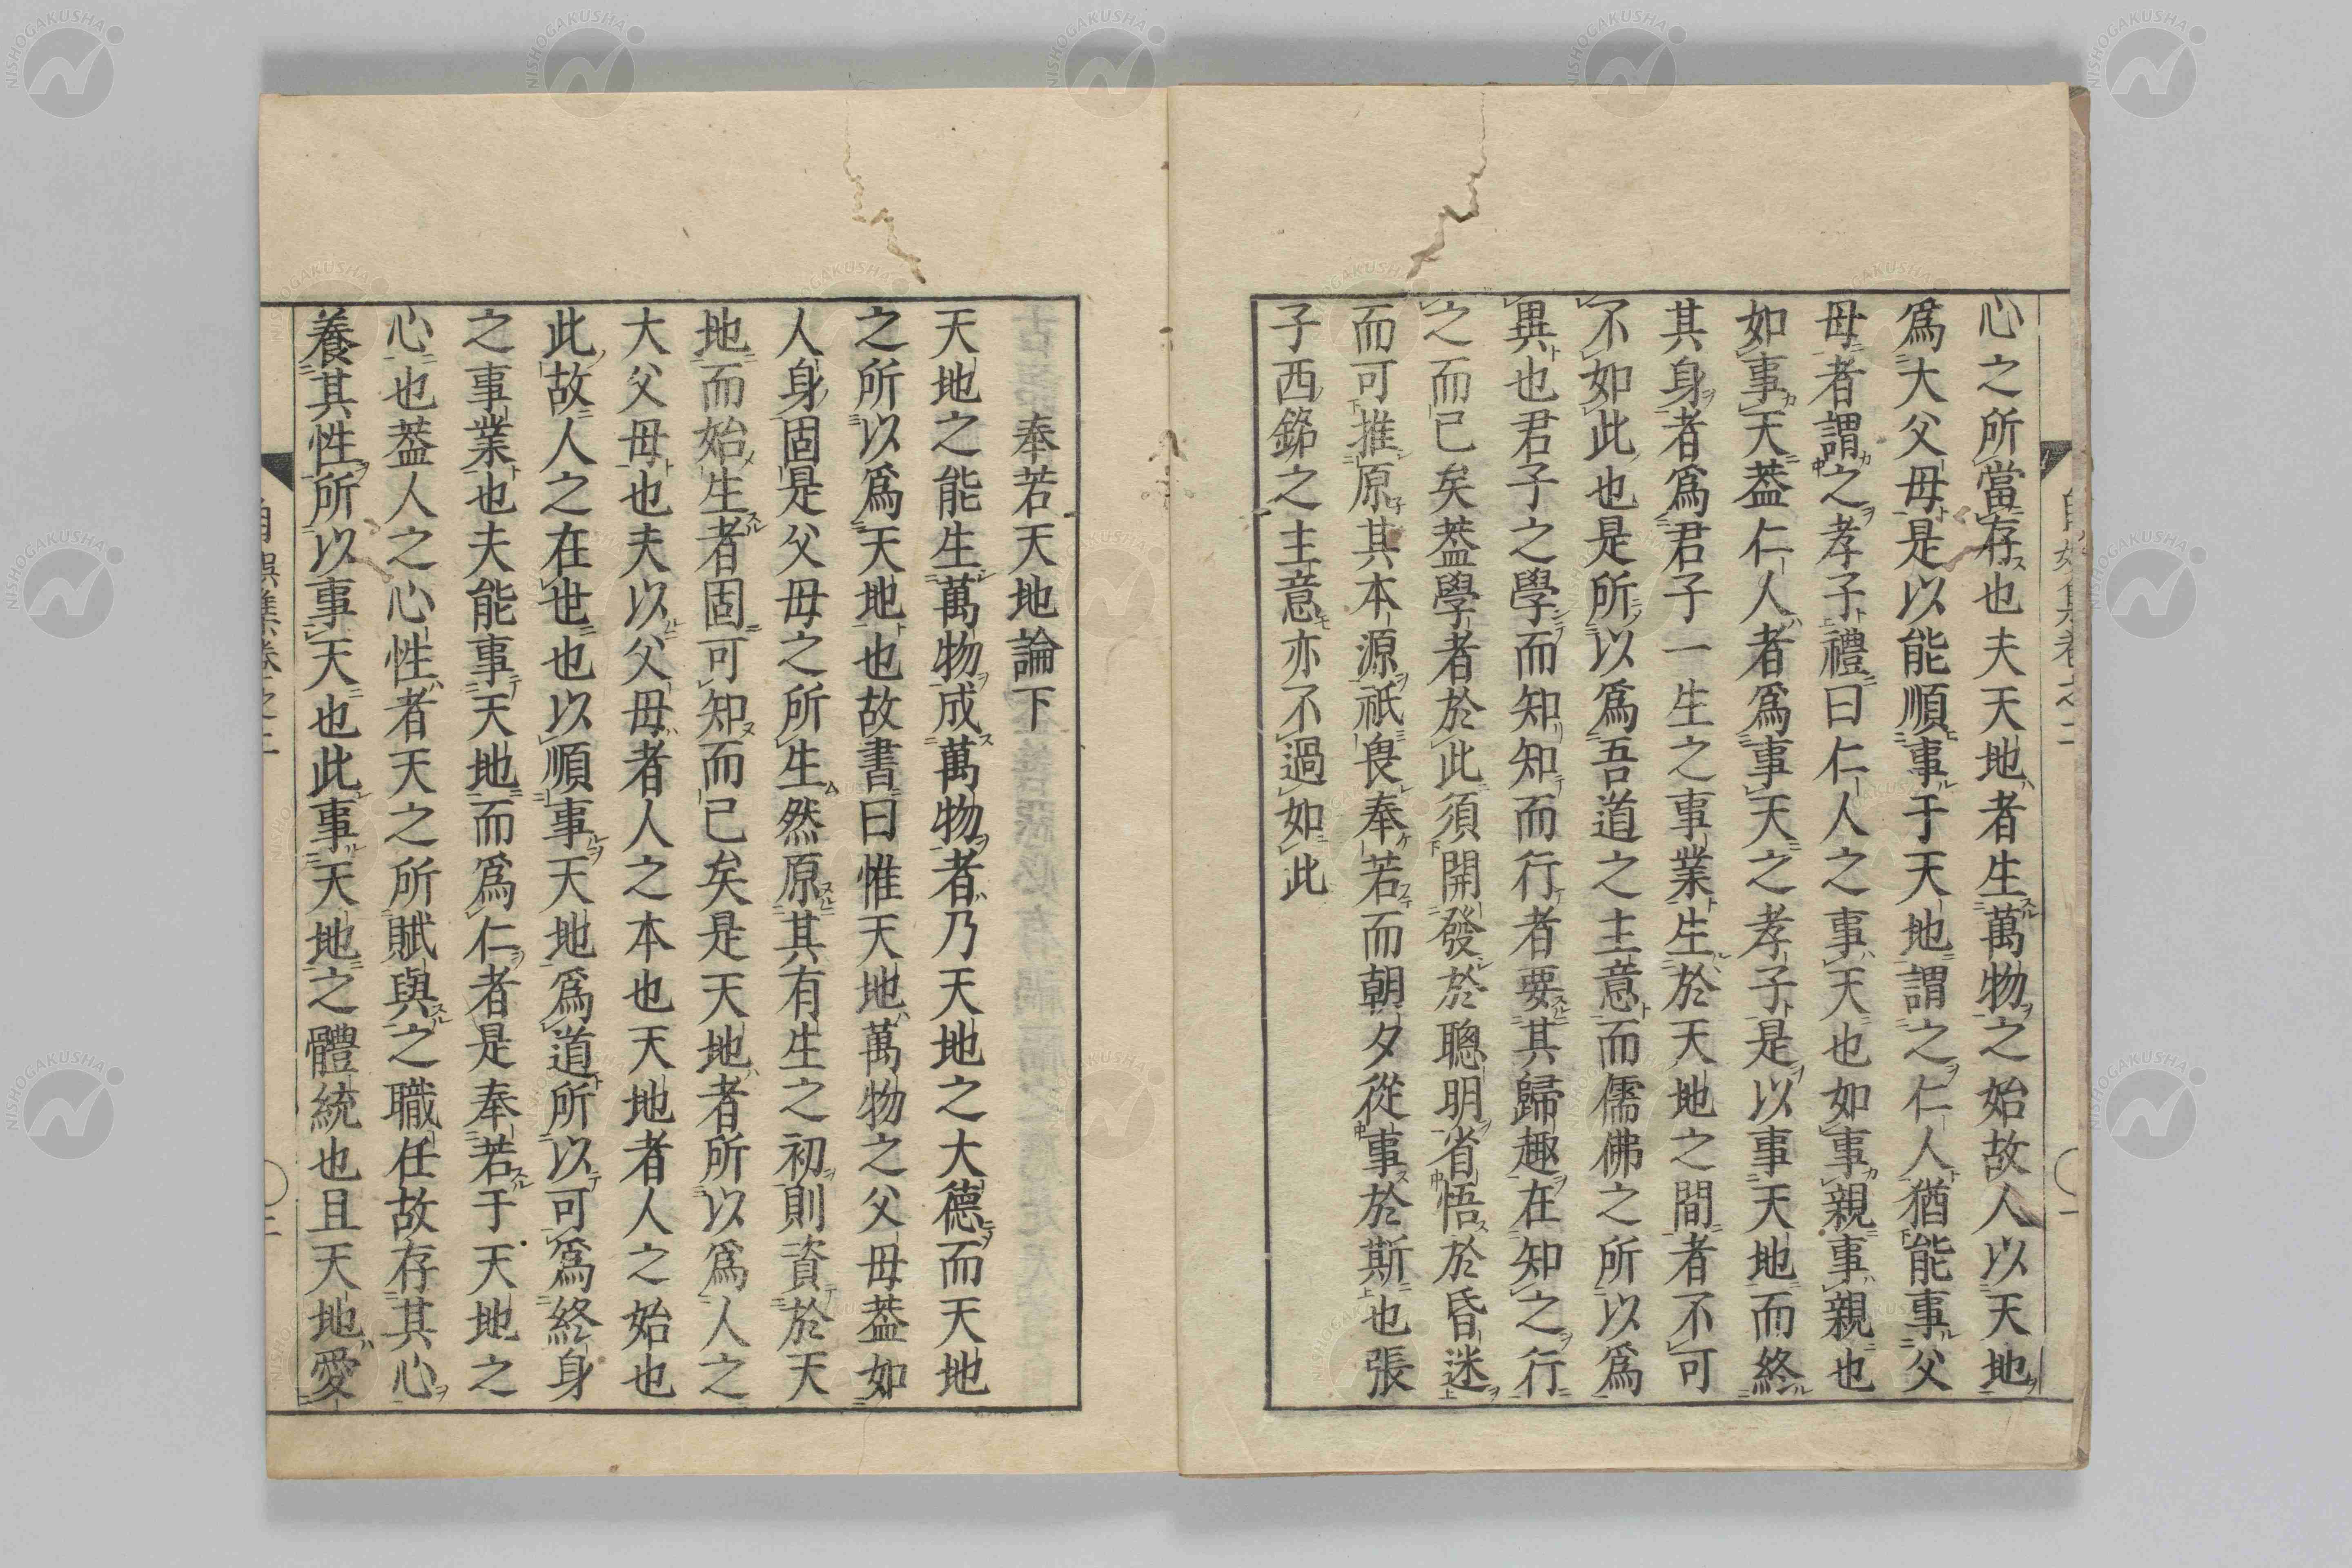 心之所當存也夫天地者生萬物之始故人以天地
爲大父母是以能順事于天地謂之仁人猶能事父
母者謂之孝子禮曰仁人之事天也如事親事親也
如事天葢仁人者爲事天之孝子是以事天地而終
其身者爲君子一生之事業生於天地之間者不可
不如此也是所以爲吾道之主意而儒佛之所以爲
異也君子之學而知知而行者要其歸趣在知之行
之而已矣葢學者於此須開發於聰明省悟於昏迷
而可推原其本源祇㒵奉若而朝夕從事於斯也張
子西銘之主意亦不過如此
奉若天地論下
天地之能生萬物成萬物者乃天地之大德而天地
之所以爲天地也故書曰惟天地萬物之父母葢如
人身固是父母之所生然原其有生之初則資於天
地而始生者固可知而已矣是天地者所以爲人之
大父母也夫以父母者人之本也天地者人之始也
此故人之在世也以順事天地爲道所以可爲終身
之事業也夫能事天地而爲仁者是奉若于天地之
心也葢人之心性者天之所賦與之職任故存其心
養其性所以事天也此事天地之體統也且天地愛